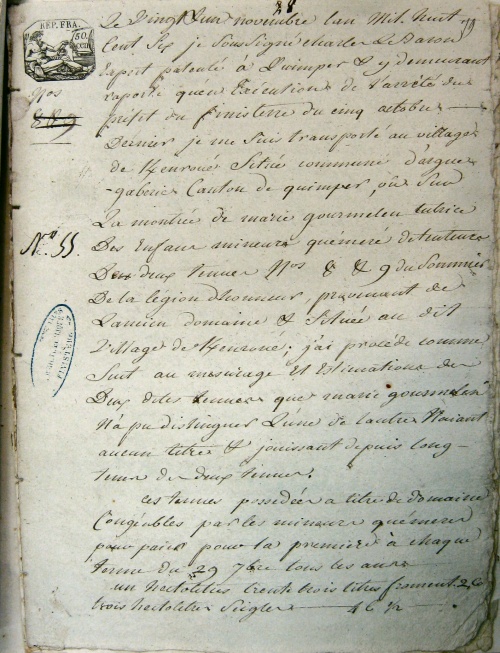 88
REP. FRA.
50. CEN
Le vingt un novembre l'an Mil huit
Cent Six je Soussigné charles Le Baron
Expert patenté à Quimper & y demeurant
rapporte qu'en Exécution de l'arrêté du
préfet du finisterre du cinq octobre
Dernier je me suis transporté au village
de Kenroué Située commune d'ergue
-gaberic Canton de quimper, où Sur
La montrée de marie gourmelen tutrice
Des Enfans mineurs quéméré detenteurs
Des deux tenues Nos 8 & 9 du Sommier
De la légion d'honneur, provenant de
L'ancien domaine & Située au dit
Village de Kenroué; j'ai procédé comme
Suit au mesurage et Estimations des
Deux dites tenues que marie gourmelen
N'a pu distinguer L'une de l'autre N'aiant
aucun titre & jouissant depuis long-
tems de deux tenues.
Ces tenues possedées a titre de domaine
Congéables par les mineurs quéméré
pour païer pour la première à chaque
terme du 29 7bre tous les ans
un hectolitres trente trois litres froment
trois hectolitres Seigle
Nos
889
Nº. 55.